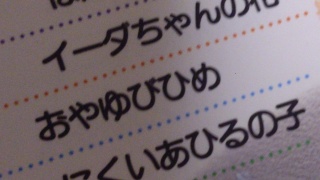 イーダちゃんの花
おやゆびひめ
にくいあひるの子